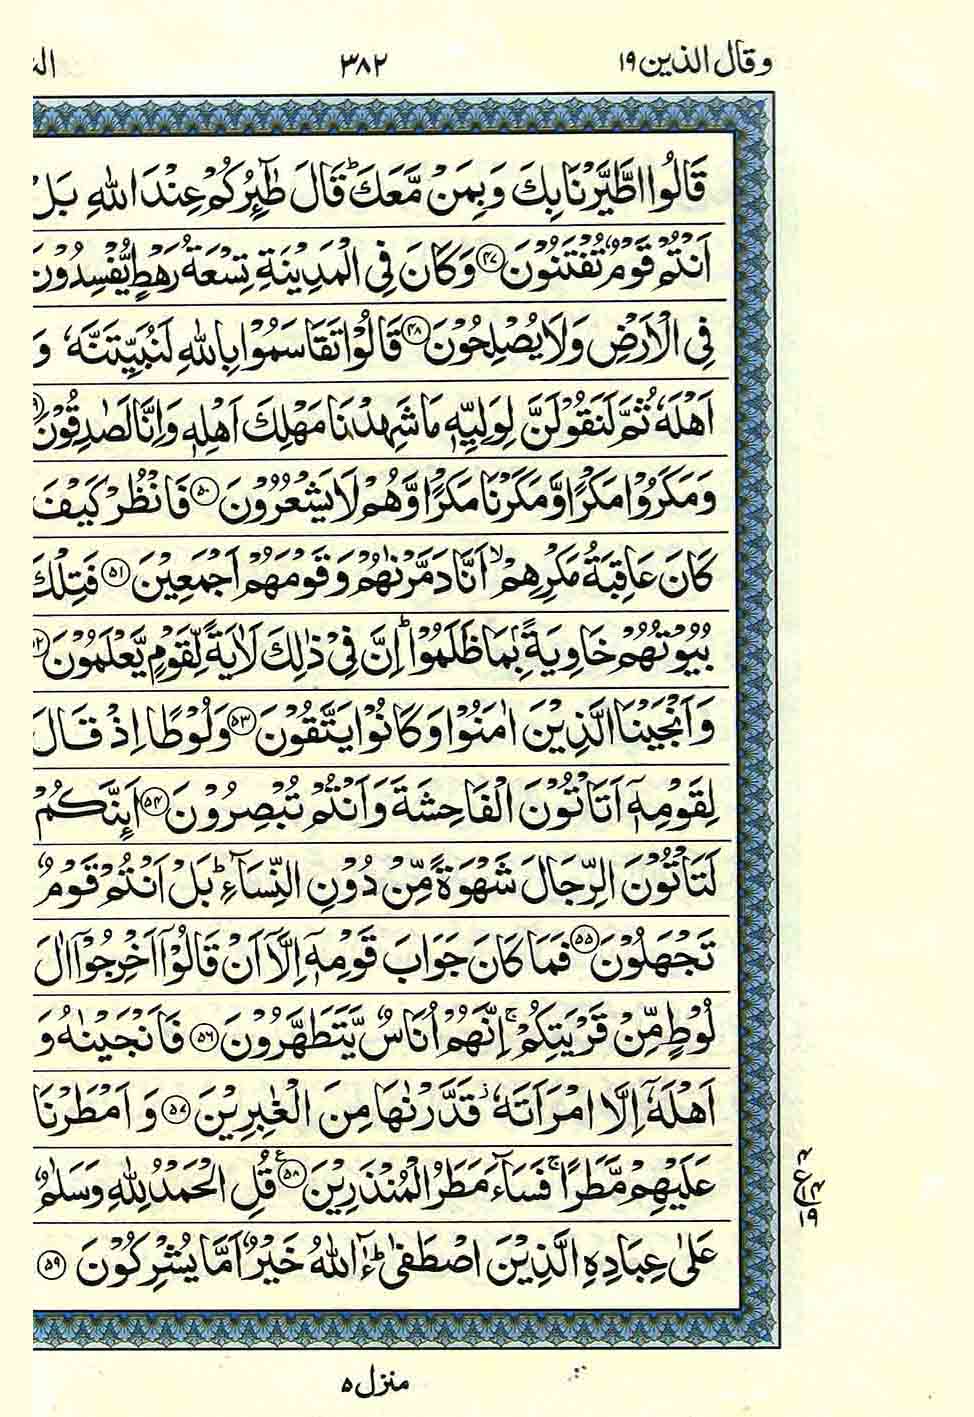 وقال الذين ١٩
٣٨٢
قَالُوا اطَّيَّرْنَا بِكَ وَبِمَنْ مَّعَكَ ؕ قَالَ طٰٓئِرُكُمْ عِنْدَ اللّٰهِ بَلْ
اَنْتُمْ قَوْمٌ تُفْتَنُوْنَ ﴿۴۷﴾ وَكَانَ فِي الْمَدِيْنَةِ تِسْعَةُ رَهْطٍ يُّفْسِدُوْنَ
فِي الْاَرْضِ وَلَا يُصْلِحُوْنَ ﴿۴۸﴾ قَالُوْا تَقَاسَمُوْا بِاللّٰهِ لَنُبَيِّتَنَّهٗ وَ
اَهْلَهٗ ثُمَّ لَنَقُوْلَنَّ لِوَلِيِّهٖ مَا شَهِدْنَا مَهْلِكَ اَهْلِهٖ وَاِنَّا لَصٰدِقُوْنَ
وَمَكَرُوْا مَكْرًا وَّمَكَرْنَا مَكْرًا وَّهُمْ لَا يَشْعُرُوْنَ ﴿۵۰﴾ فَانْظُرْ كَيْفَ
كَانَ عَاقِبَةُ مَكْرِهِمْ ۙ اَنَّا دَمَّرْنٰهُمْ وَقَوْمَهُمْ اَجْمَعِيْنَ ﴿۵۱﴾ فَتِلْكَ
بُيُوْتُهُمْ خَاوِيَةًۢ بِمَا ظَلَمُوْا ؕ اِنَّ فِيْ ذٰلِكَ لَاٰيَةً لِّقَوْمٍ يَّعْلَمُوْنَ
وَاَنْجَيْنَا الَّذِيْنَ اٰمَنُوْا وَكَانُوْا يَتَّقُوْنَ ﴿۵۳﴾ وَلُوْطًا اِذْ قَالَ
لِقَوْمِهٖٓ اَتَاْتُوْنَ الْفَاحِشَةَ وَاَنْتُمْ تُبْصِرُوْنَ ﴿۵۴﴾ اَئِنَّكُمْ
لَتَاْتُوْنَ الرِّجَالَ شَهْوَةً مِّنْ دُوْنِ النِّسَآءِ ؕ بَلْ اَنْتُمْ قَوْمٌ
تَجْهَلُوْنَ ﴿۵۵﴾ فَمَا كَانَ جَوَابَ قَوْمِهٖٓ اِلَّآ اَنْ قَالُوْٓا اَخْرِجُوْٓا اٰلَ
لُوْطٍ مِّنْ قَرْيَتِكُمْ ۚ اِنَّهُمْ اُنَاسٌ يَّتَطَهَّرُوْنَ ﴿۵۶﴾ فَاَنْجَيْنٰهُ وَ
اَهْلَهٗٓ اِلَّا امْرَاَتَهٗ ؗ قَدَّرْنٰهَا مِنَ الْغٰبِرِيْنَ ﴿۵۷﴾ وَاَمْطَرْنَا
عَلَيْهِمْ مَّطَرًا ۚ فَسَآءَ مَطَرُ الْمُنْذَرِيْنَ ﴿۵۸﴾ ع قُلِ الْحَمْدُ لِلّٰهِ وَسَلٰمٌ
عَلٰى عِبَادِهِ الَّذِيْنَ اصْطَفٰى ؕ ءٰٓاللّٰهُ خَيْرٌ اَمَّا يُشْرِكُوْنَ ﴿۵۹﴾
۴
ع ۱۴
۱۹
منزل ۵